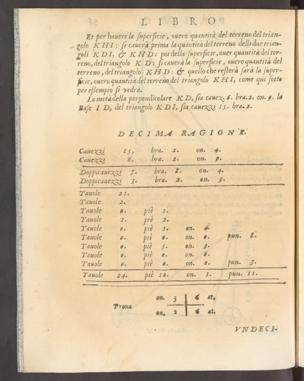 LIBRO
Et per hauere la superficie, ouero quantità del terreno del trian-
golo KHI: si cauerà prima la quantità del terreno delli due trian-
goli KDI, & KHD: poi della superficie, ouer quantità del ter-
reno, del triangolo KD: si cauerà la superficie, ouero quantità del
terreno, del triangolo KHD: & quello che resterà sarà la super-
ficie, ouero quantità del terreno del triangolo KHI, come quì sotto
per essempio si vedrà.
La metà della perpendicolare KD, sia cauez. 6. bra. 2. on. 9. la
Base ID, del triangolo KDI, sia cauezzi 15. bra. 2.
DECIMA RAGIONE.
Cauezzi 15. bra. 2. on. 4.
Cauezzi 6. bra. 2. on. 9.
Doppicauezzi 7. bra. on. 4.
Doppicauezzi 3. bra. 2. on. 9.
Tauole 21.
Tauole 2.
Tauole 0. piè
Tauole piè 2.
Tauole 0. piè on. 4.
Tauole 0. piè on. pun.
Tauole 0. piè on.
Tauole 0. piè 0. on.
Tauole 0. piè 0. on. 0. pun.
Tauole 24. piè 10. on. pun. 11.
Proua
on. 3 6 at.
on. 2 6 at.
VNDECI-